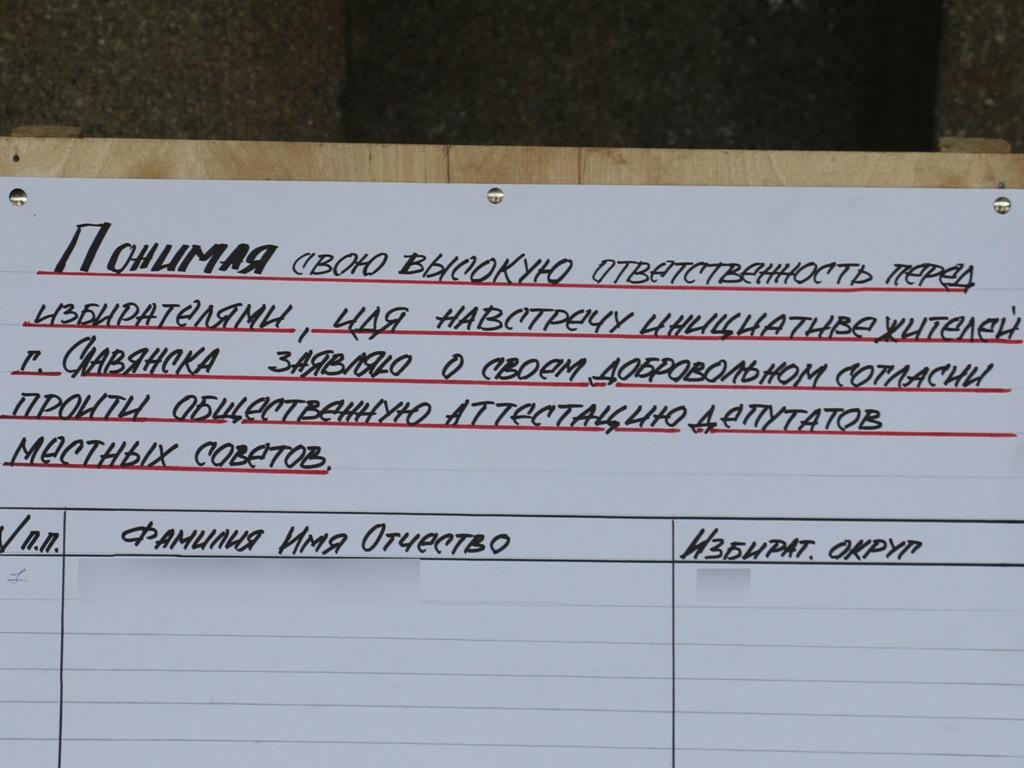 Понимая свою высокую ответственность перед
избирателями, идя навстречу инициативе жителей
г. Славянска заявляю о своем добровольном согласии
пройти общественную аттестацию депутатов
местных советов.
/п.п. Фамилия Имя Отчество Избират. округ
1